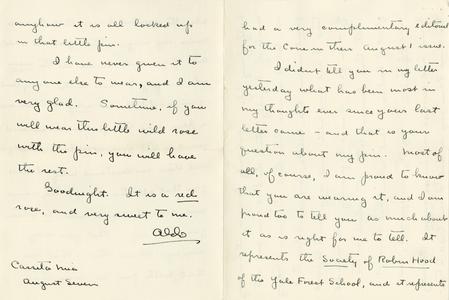 anyhow it is all locked up
in that little pin.
I have never given it to
anyone else to wear, and I am
very glad. Sometime, if you
will wear this little wild rose
with the pin, you will have
the rest.
Goodnight. It is a red
rose, and very sweet to me.
Aldo
Carrita mia
August Seven
had a very complimentary editorial
for the Cone in their August 1 issue.
I didn't tell you in my letter
yesterday what has been most in
my thoughts ever since your last
letter came – and that is your
question about my pin. Most of
all, of course, I am proud to know
that you are wearing it, and I am
proud too to tell you as much about
it as is right for me to tell. It
represents the Society of Robin Hood
of the Yale Forest School, and it represents